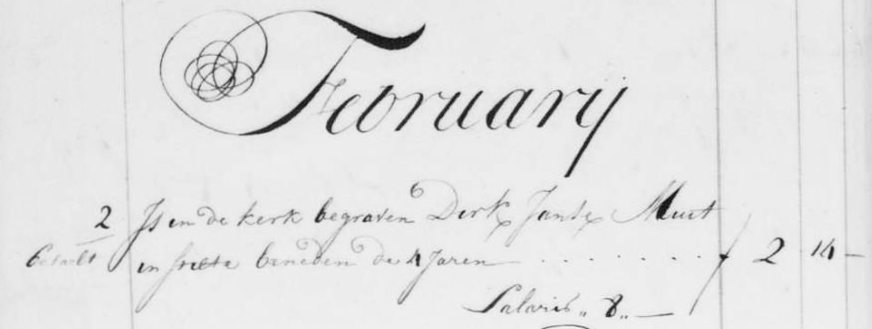 February
2 Is in de kerk begraven Dirk Jansz Muut
betaelt in stilte beneden de 4 Jaren . . . . . . . . f 2 14 —
Salaris „ 8 „ —